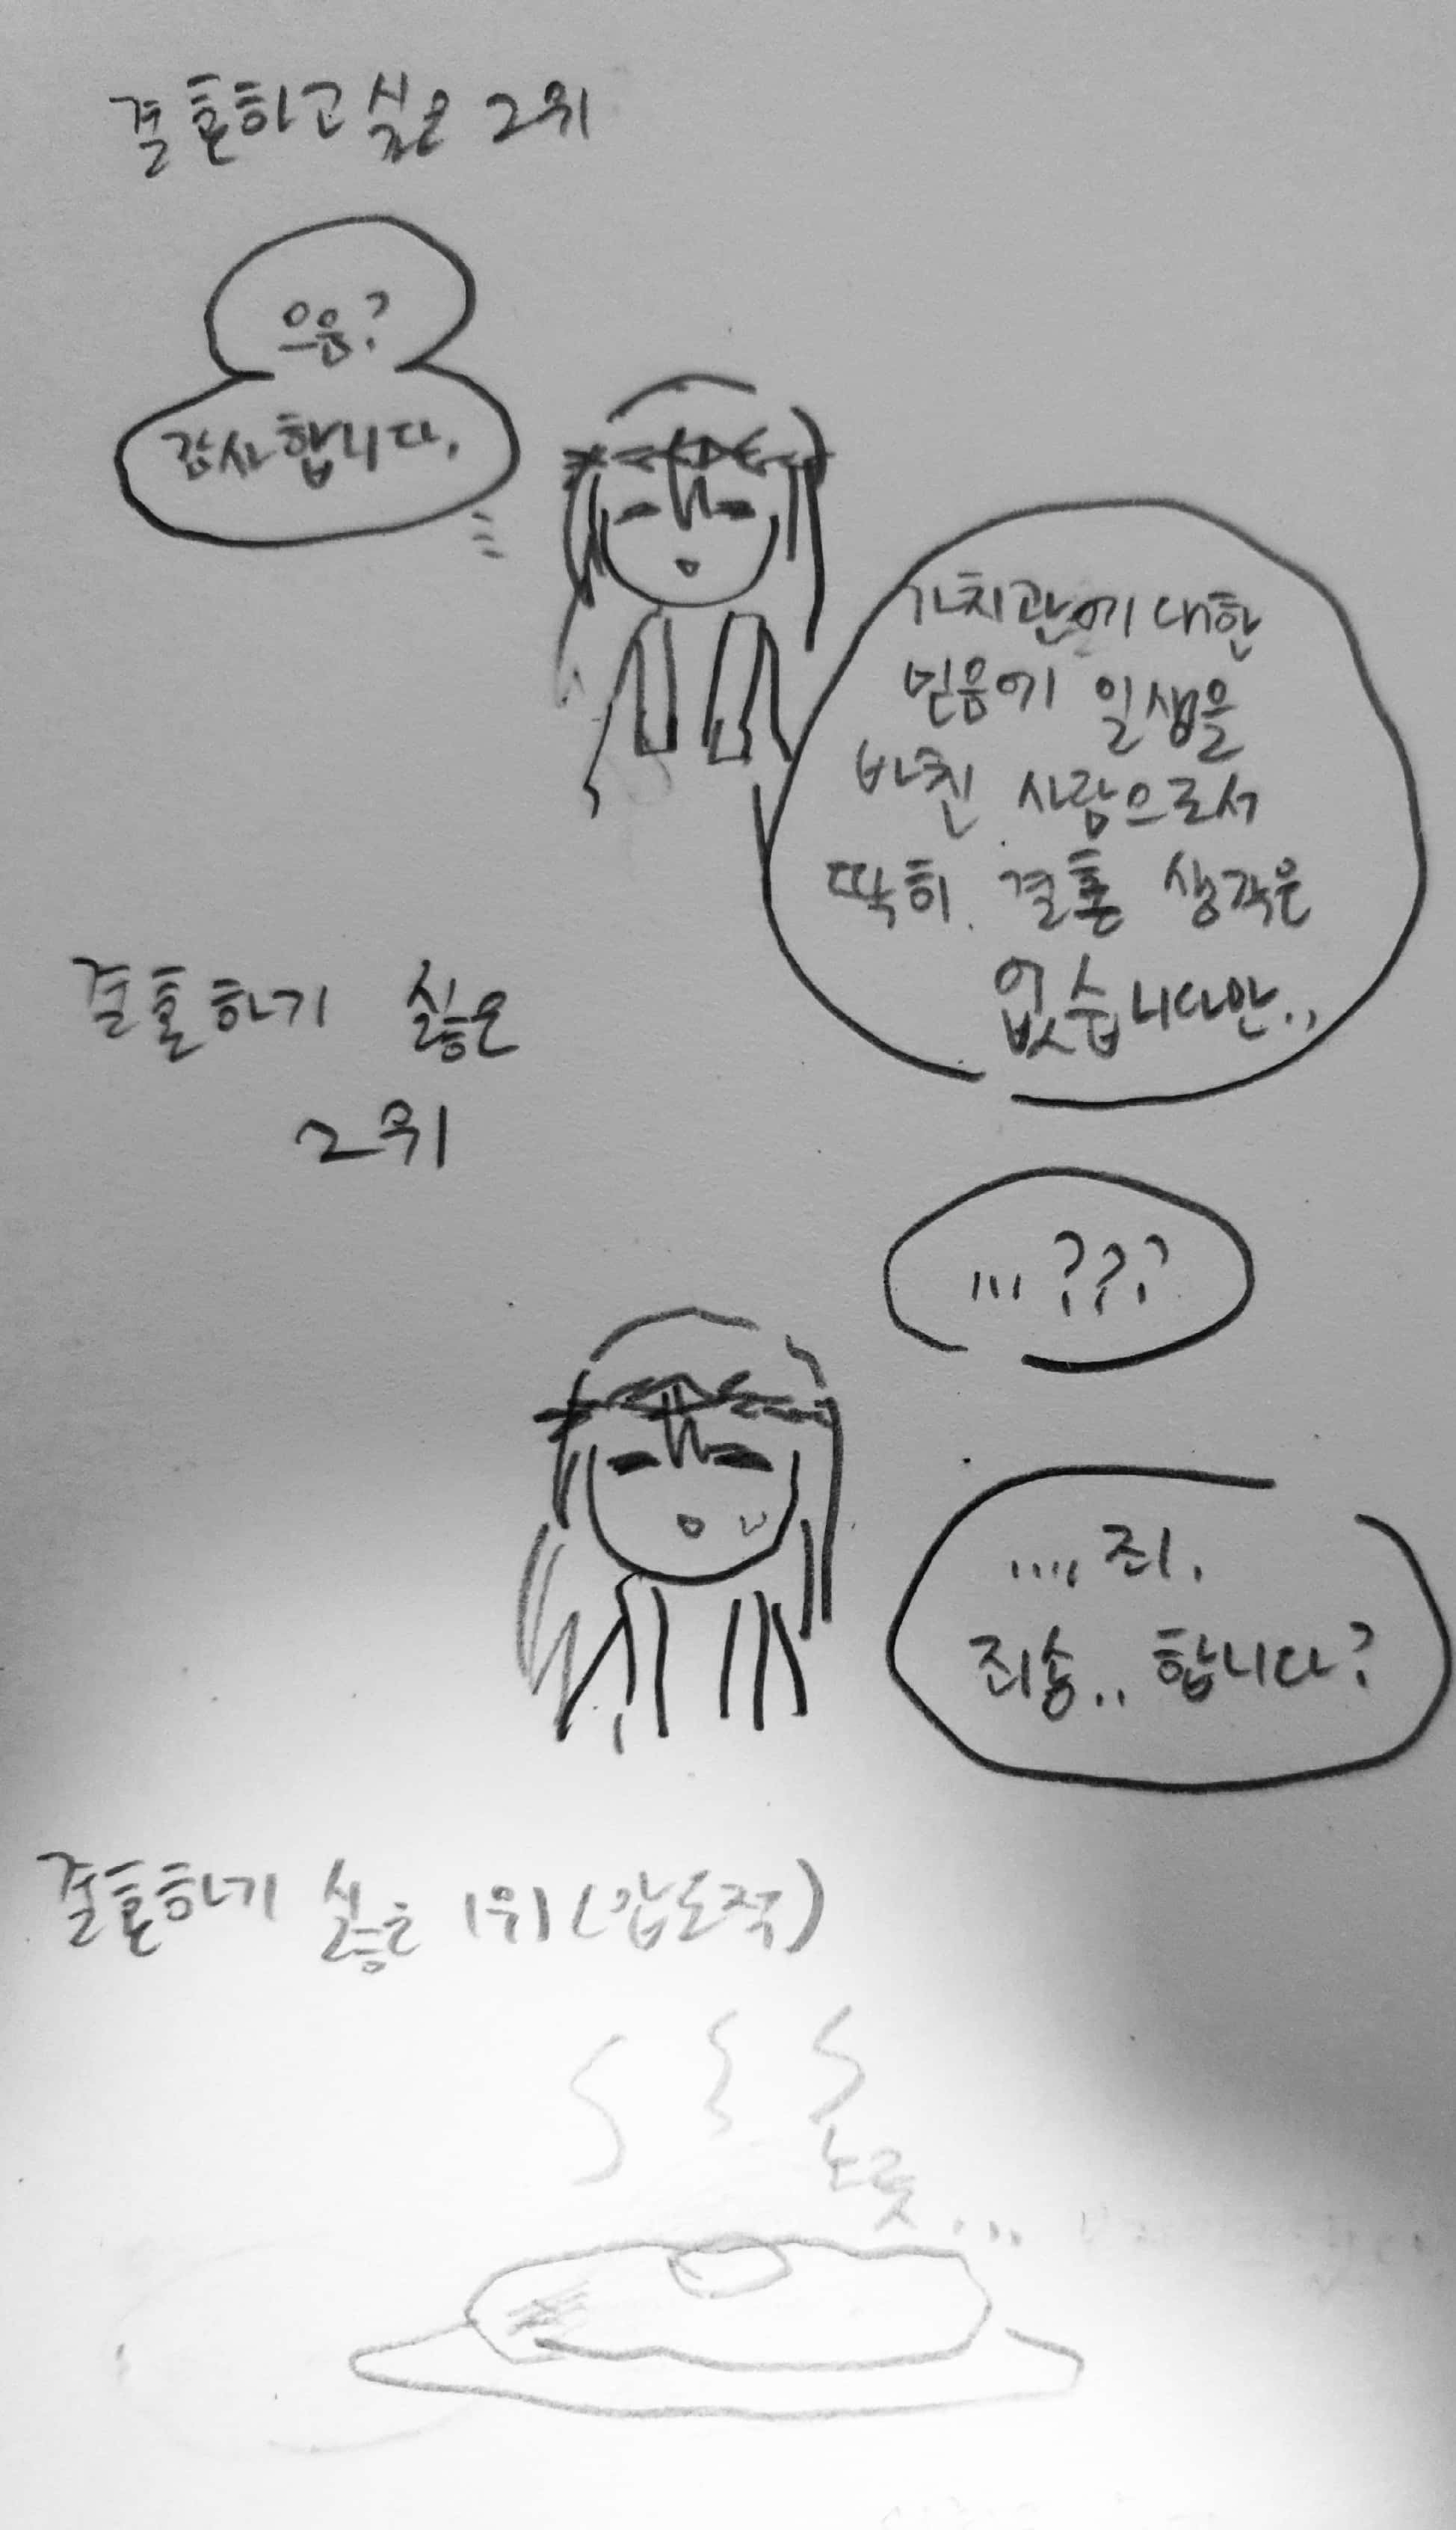 결혼하고 싶은 2위
으음?
감사합니다.
가치관에 대한
믿음에 일생을
바친 사람으로서
딱히 결혼 생각은
없습니다만..
결혼하기 싫은
2위
...???
.... 죄.
죄송.. 합니다?
결혼하기 싫은 1위 (압도적)
노릇...